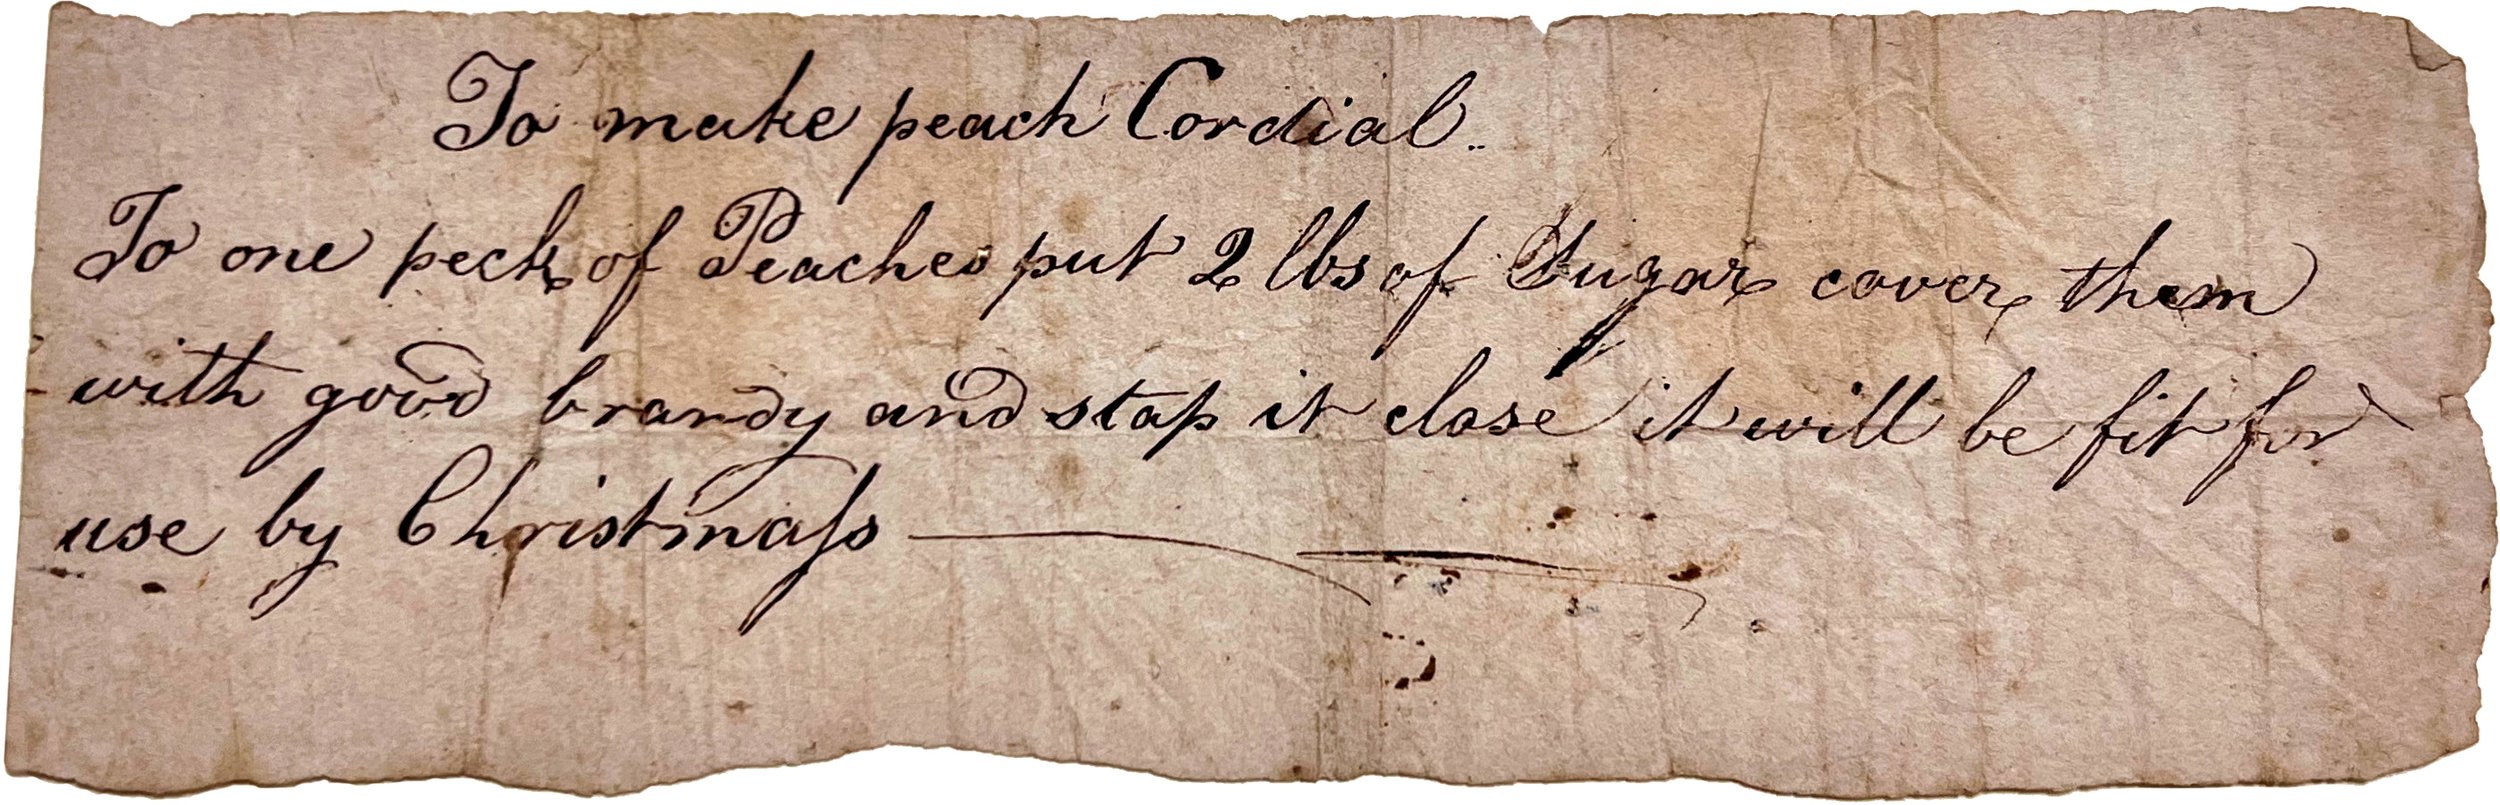 To make peach Cordial.
To one peck of Peaches put 2 lbs of Sugar cover them
with good brandy and stop it close it will be fit for
use by Christmaſs